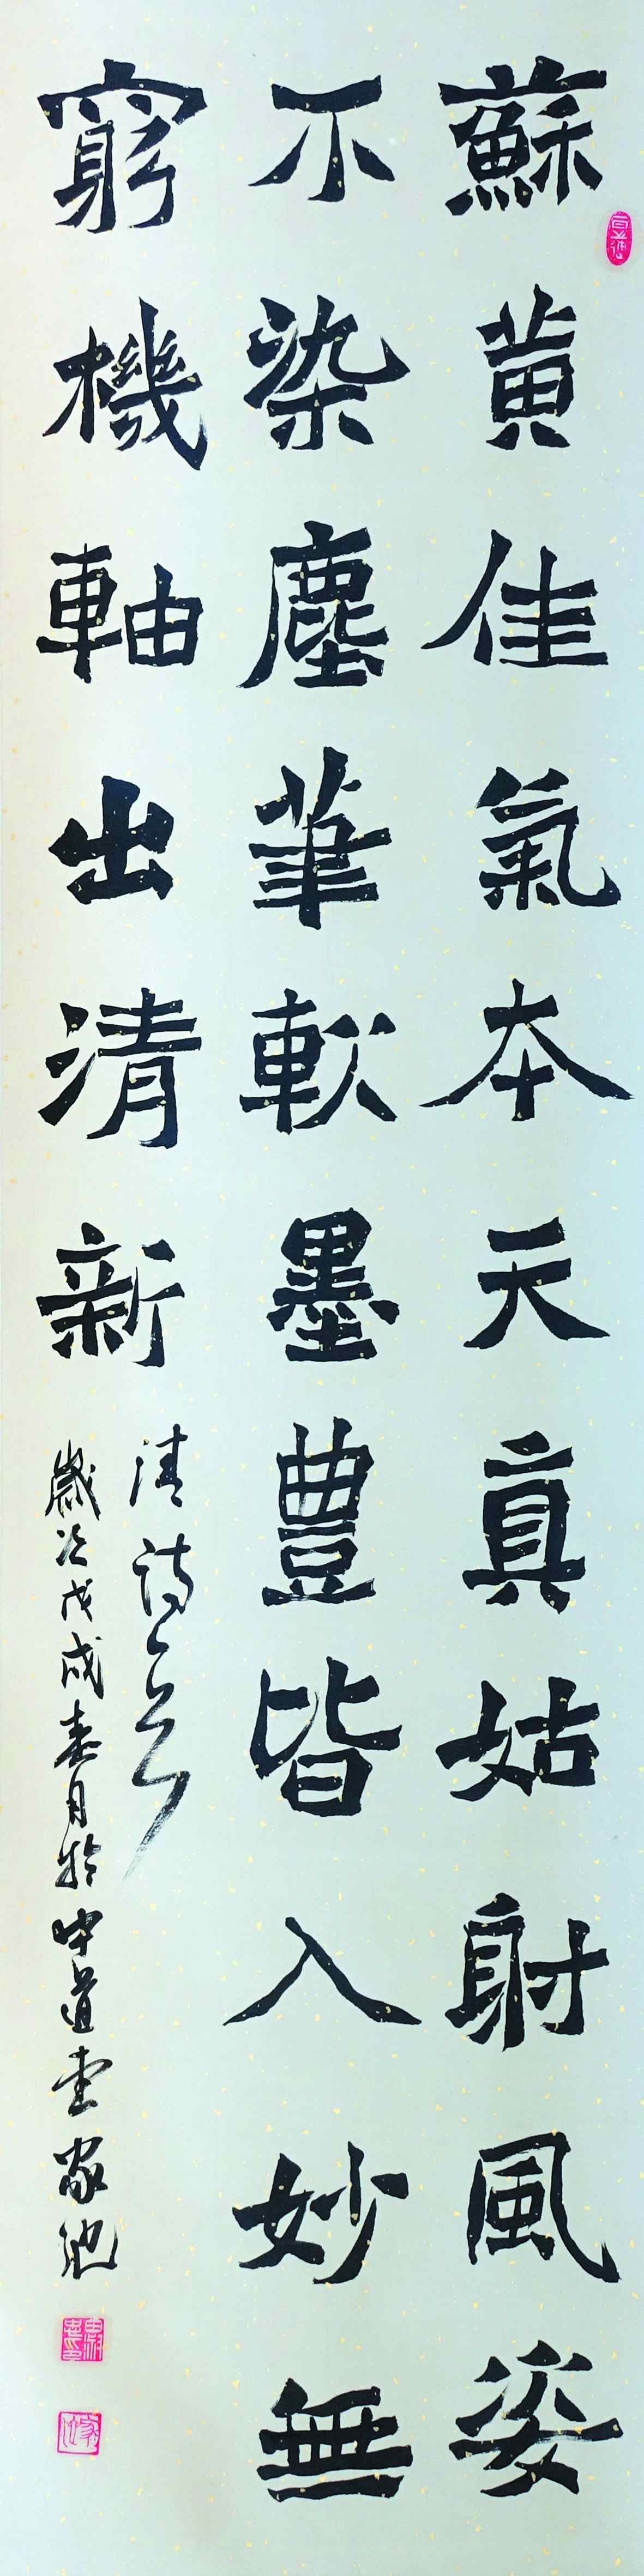 蘇黃佳氣本天真姑射風姿
不染塵筆軟墨豐皆入妙無
窮機軸出清新
清詩一首
歲次戊戌春月於中道堂家池